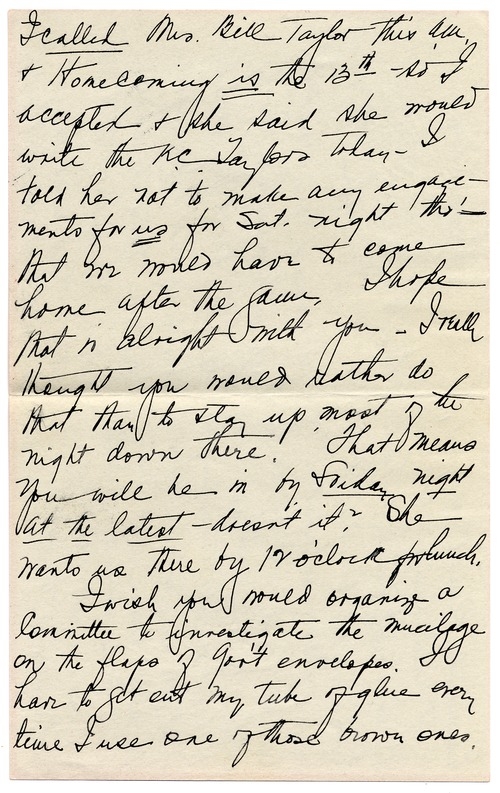 I called Mrs. Bill Taylor this am,
& Homecoming is the 13th - so I
accepted & she said she would
write the K.C. Taylors today - I
told her not to make any engage-
ments for us for Sat. night tho' -
that we would have to come
home after the game. I hope
that is alright with you - I really
thought you would rather do
that than to stay up most of the
night down there. That means
you will be in by Friday night
at the latest - doesn't it? She
wants us there by 12 o'clock for lunch.
I wish you would organize a
Committee to investigate the mucilage
on the flaps of Gov't envelopes. I
have to get out my tube of glue every
time I use one of those brown ones.